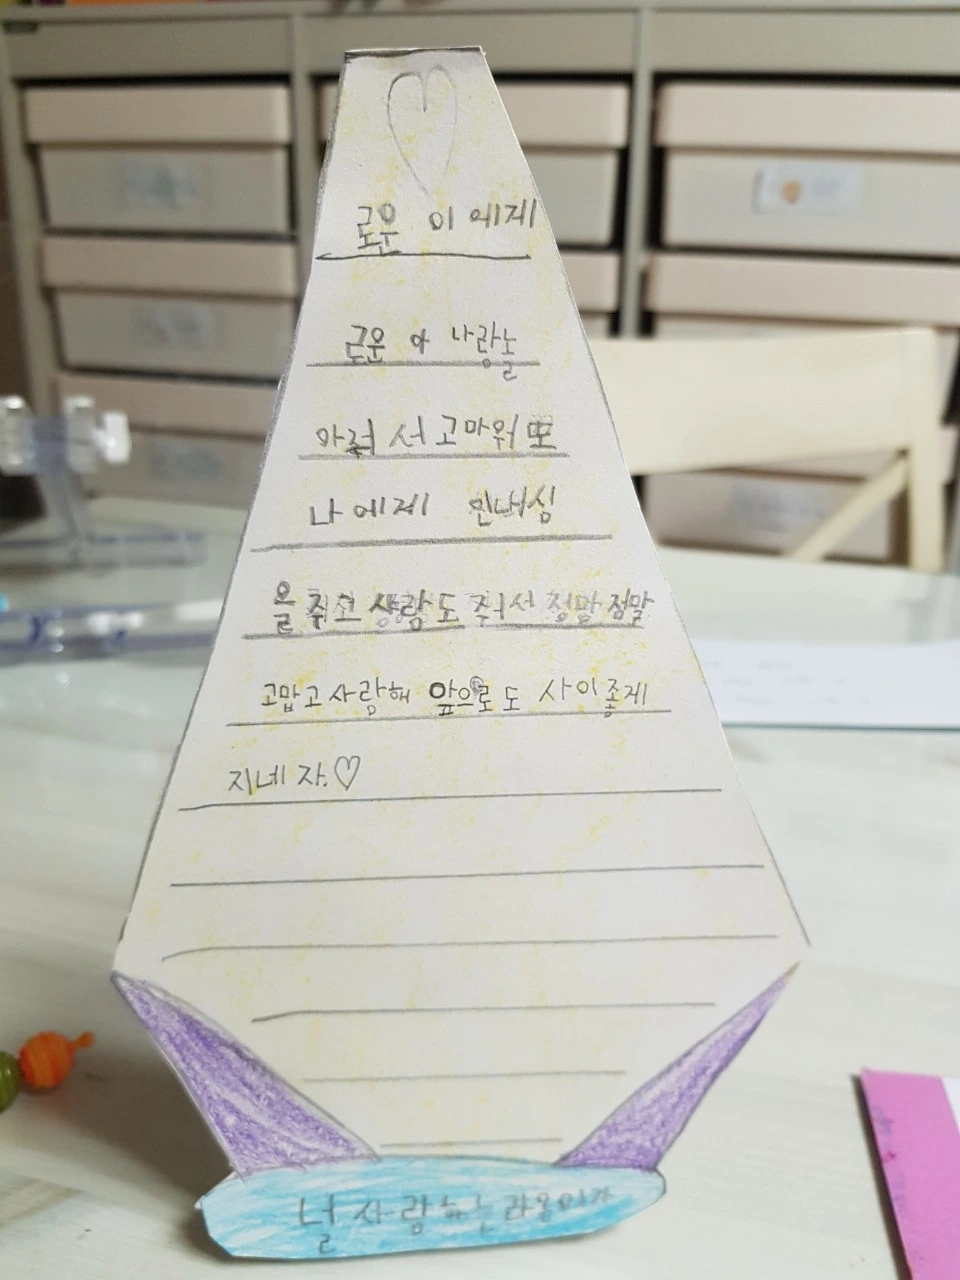 로운 이에게
로운 아 나랑놀
아줘서 고마워 또
나에게 인내심
을 주고 사랑도 줘서 정말 정말
고맙고 사랑해 앞으로도 사이좋게
지네자.♡
널 사랑하는 라온이가